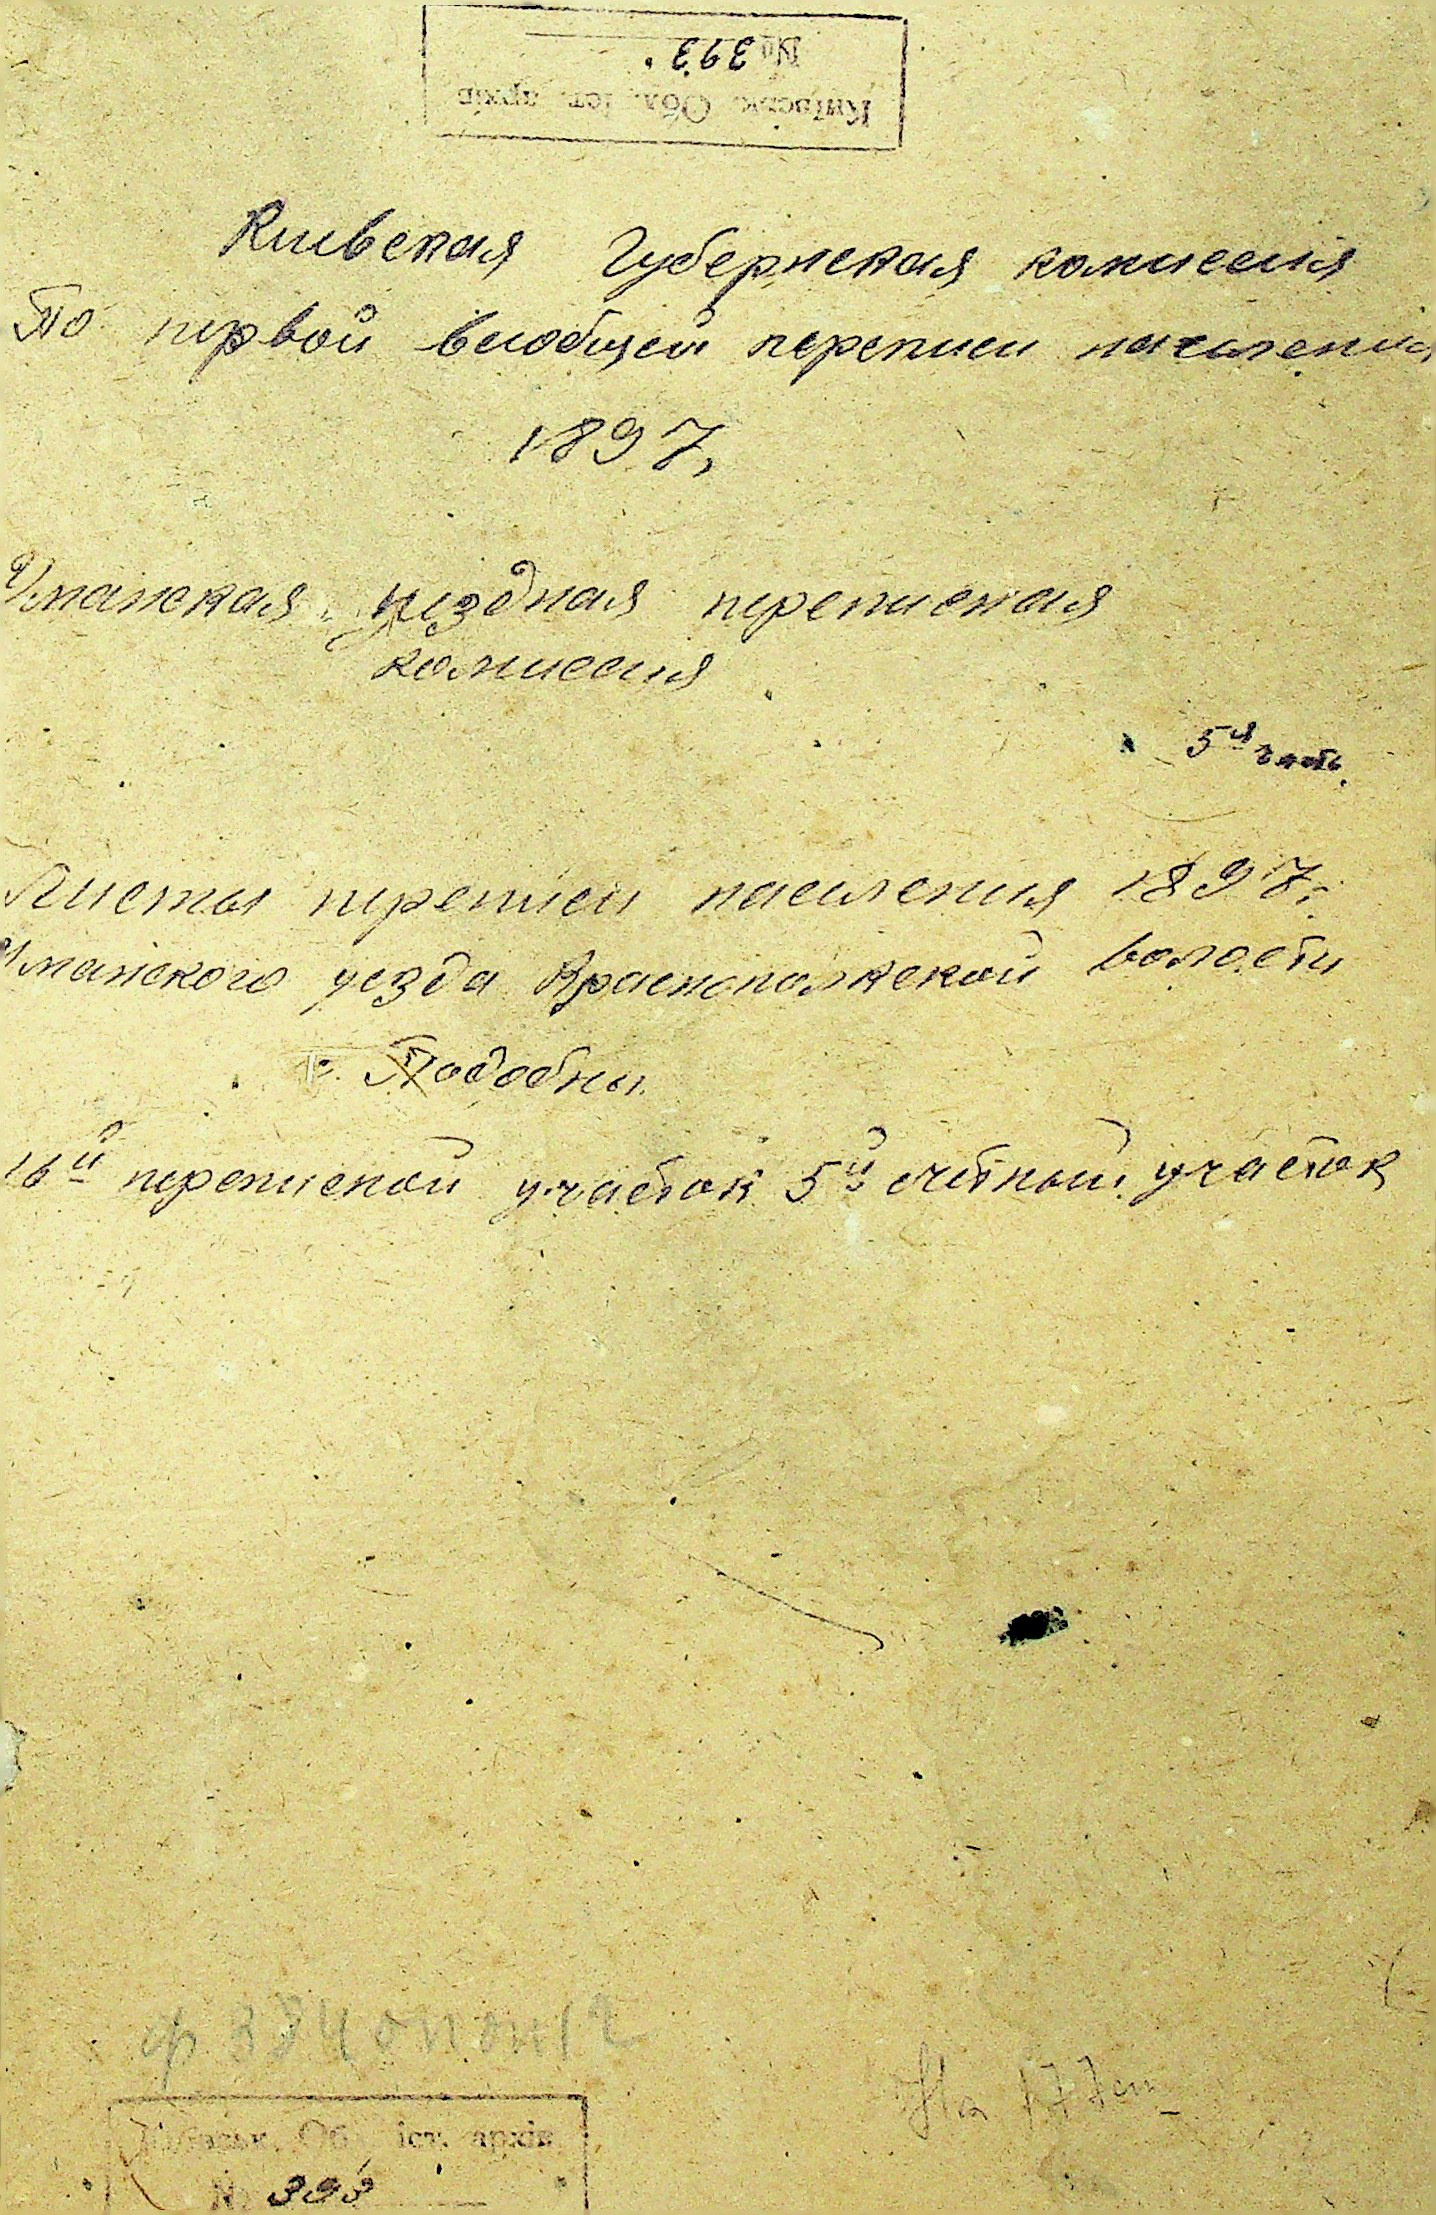 Київськ. Обл. іст. архів
№ 393.
Киевская Губернская комиссия
По первой всеобщей переписи населения
1897г
Уманская уездная переписная
комиссия
5ая часть.
Листы переписи населения 1897г.
Уманского уезда Краснополкской волости
Подобны
16й переписной участок 5й счётный участок
ф 384 опон12
На 177 лл
Київськ. Обл. іст. архів
№ 393